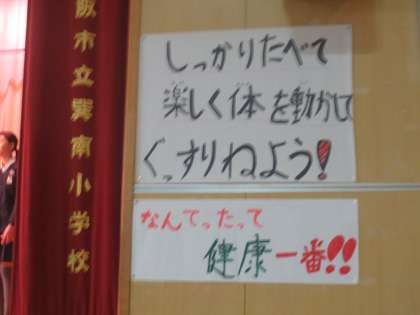 阪市立巽南小学校
しっかりたべて
楽しく体を動かして
ぐっすりねよう!
なんてったって
健康一番!!